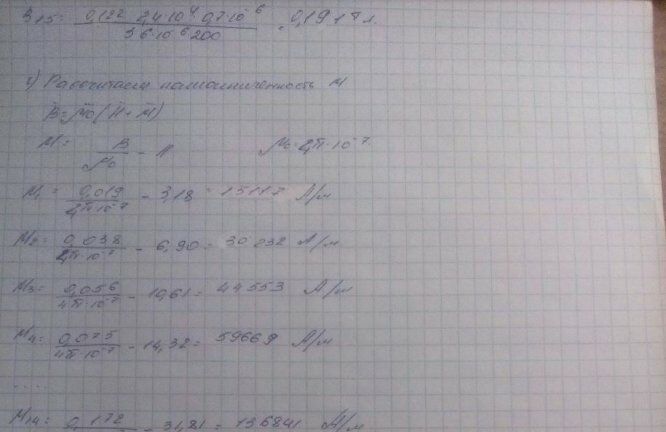 B15= 0,122 · 2,4·10⁴ · 0,7·10⁻⁶ / 36·10⁻⁶·200 = 0,19 Тл.
2) Рассчитаем намагниченность M
B=μ₀(H+M)
M = B/μ₀ - H μ₀=4π·10⁻⁷
M₁ = 0,019/4π·10⁻⁷ - 3,18 = 15117 А/м
M₂= 0,038/4π·10⁻⁷ - 6,90= 30232 А/м
M₃= 0,056/4π·10⁻⁷ - 10,61= 44553 А/м
M₄= 0,075/4π·10⁻⁷ - 14,32= 59669 А/м
....
M₁₄= 0,172 - 31,21 = 136841 А/м